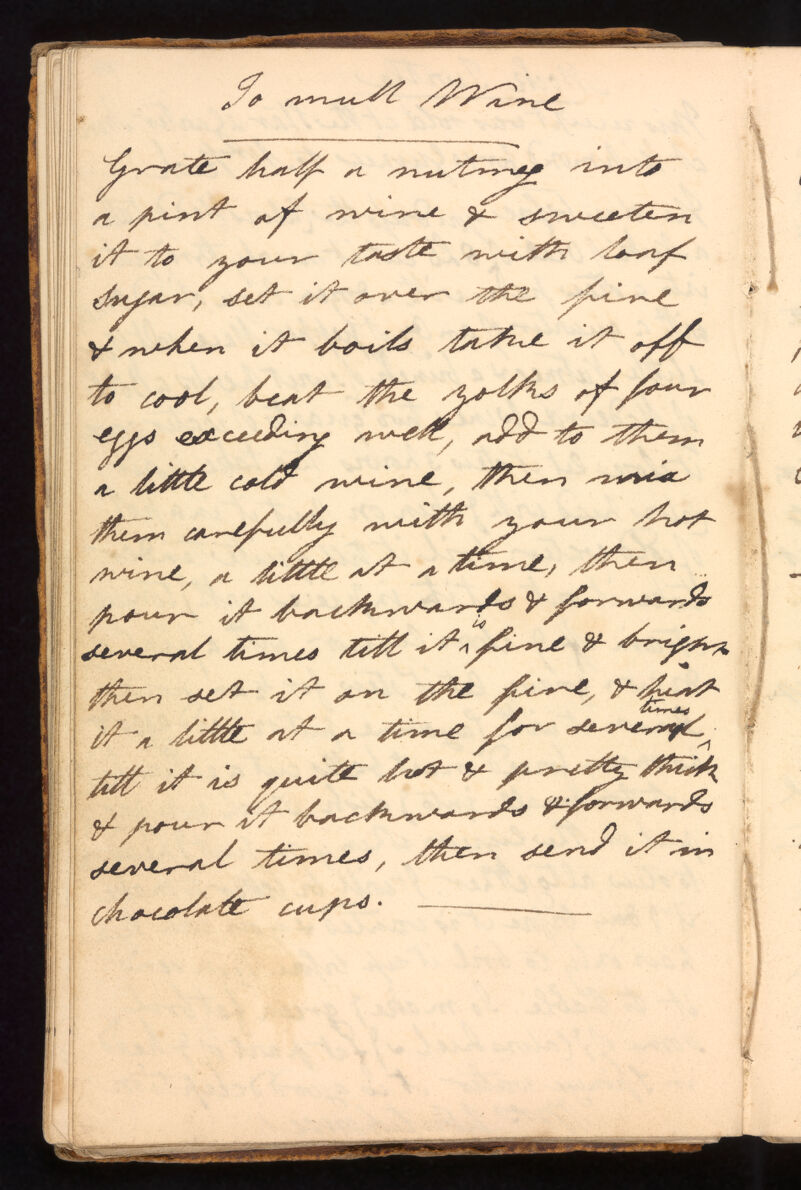 To mull Wine
Grate half a nutmeg into
a pint of wine & sweeten
it to your taste with loaf
sugar, set it over the fire
& when it boils take it off
to cool, beat the yolks of four
eggs exceeding well, add to them
a little cold wine, then mix
them carefully with your hot
wine, a little at a time, then
pour it backwards & forwards
several times till it is fine & bright
then set it on the fire, & heat
it a little at a time for several times
till it is quite hot & pretty thick
& pour it backwards & forwards
several times, then send it in
chocolate cups.